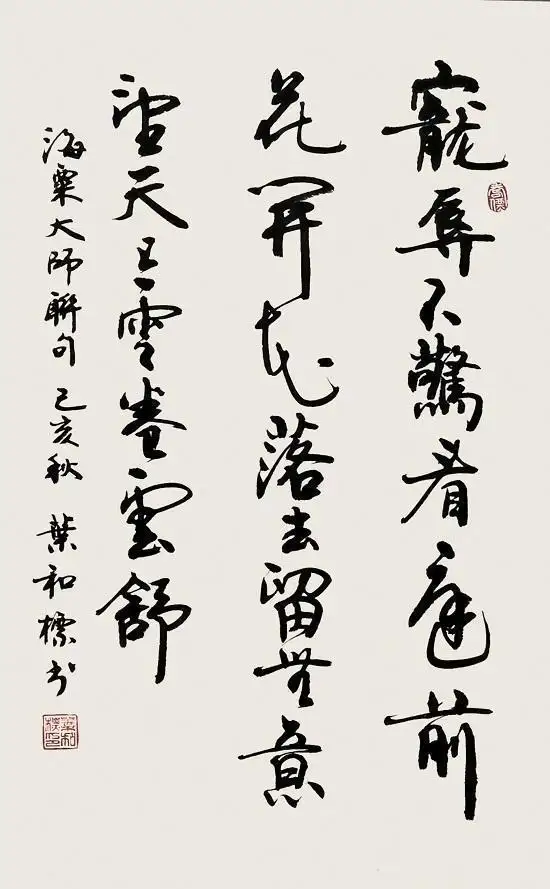 寵辱不驚看庭前
花開花落去留無意
望天上雲卷雲舒
海粟大師聯句 己亥秋 葉和標书